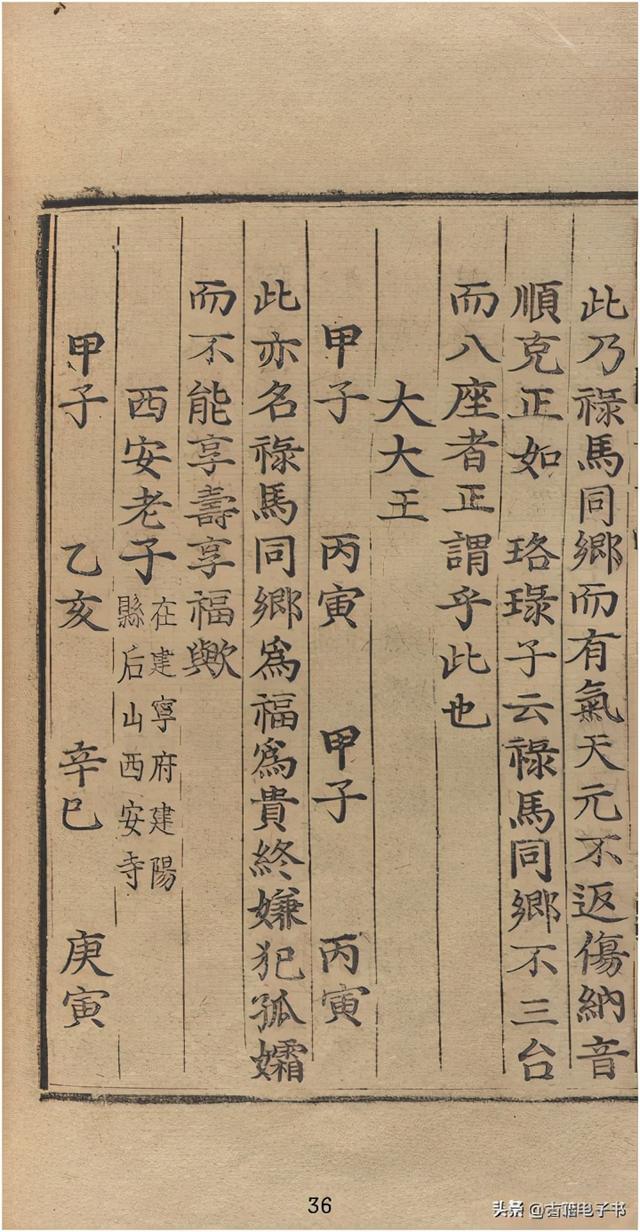 此乃祿馬同鄉而有氣天元不返傷納音
順克正如 珞琭子云祿馬同鄉不三台
而八座者正謂乎此也
大大王
甲子 丙寅 甲子 丙寅
此亦名祿馬同鄉為福為貴終嫌犯孤孀
而不能享壽享福歟
西安老子 在建寧府建陽
縣后山西安寺
甲子 乙亥 辛巳 庚寅
36
头条 @古籍电子书